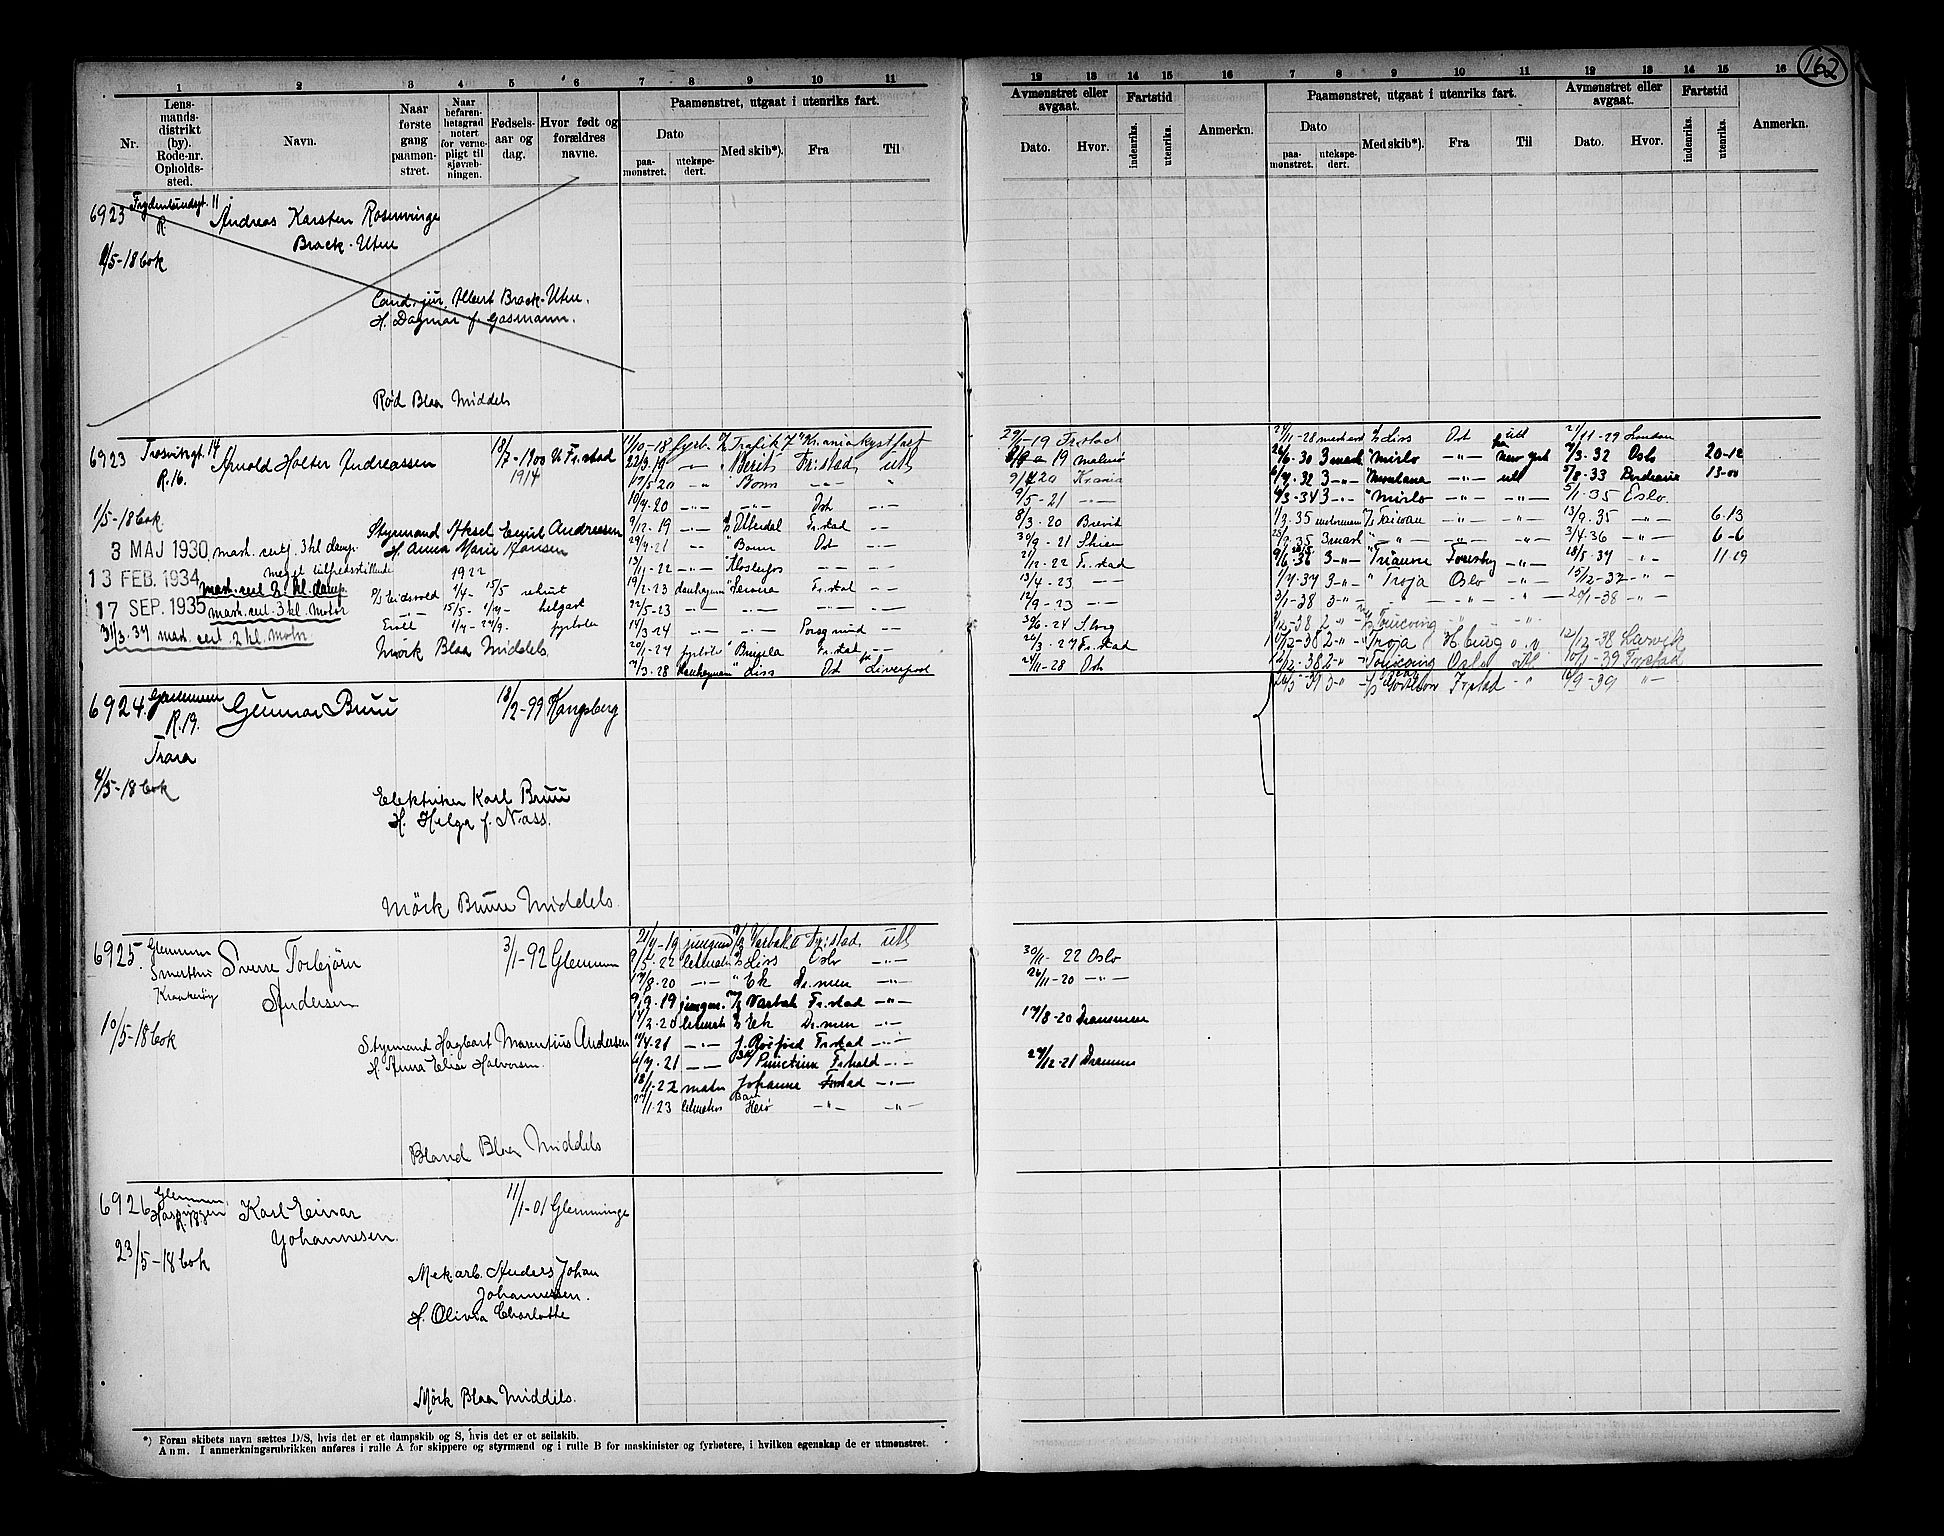 162
1 2 3 4 5 6 7 8 9 10 11
Nr.
Lens-
mands-
distrikt
(by).
Rode-nr.
Opholds-
sted.
Navn.
Naar
første
gang
paamøn-
stret.
Naar
befaren-
hetsgrad
notert
for verne-
pligt til
sjøvæb-
ningen.
Fødsels-
aar og
dag.
Hvor født og
forældres
navne.
Paamønstret, utgaat i utenriks fart.
Dato
paa-
mønstret.
utekspe-
dert.
Med skib*).
Fra
Til
12 13 14 15 16 7 8 9 10 11 12 13 14 15 16
Avmønstret eller
avgaat.
Dato.
Hvor.
Fartstid
indenriks.
utenriks.
Anmerkn.
Paamønstret, utgaat i utenriks fart.
Dato
paa-
mønstret.
utekspe-
dert.
Med skib*).
Fra
Til
Avmønstret eller
avgaat.
Dato.
Hvor.
Fartstid
indenriks.
utenriks.
Anmerkn.
6923 Frydenlundsgt. 11
R. Andreas Karsten Rosenvinge
Brock-Utne
/5-18 bok
Cand. jur. Albert Brock-Utne.
H. Dagmar f. Gasmann.
Rød Blaa Middels
6923 Trosvingt. 14 Arnold Holter Andreassen 1900 Fr.stad
R.16. 1914
1/5-18 bok
Styrmand Aksel Emil Andreassen
H. Anna Marie Hansen
3 MAJ 1930 mask. sert. 3 kl. damp.
meget tilfredsstillende
13 FEB. 1934 mask. sert. 2 kl. damp. 1922
17 SEP. 1935 mask. sert. 3 kl. motor
31/3.37 mask. sert. 2 kl. motor
Eidsvold 4/4- 15/5 rekrut
Mørk Blaa Middels
11/10-18 fyrb. Trafik Kr.ania kystfart
22/3 19 Berit Fr.stad utl
17/5 20 Bonn
10/9-20 Ost
9/12-19 Otterdal Fr.stad
29/4-21 Bonn Ost
13/11-22 Klosterfos
19/2-23 Fr.stad
22/5-23
14/3 24 Porsgrund
20/1-27 Fr.stad
/3-28 Donkeymann Liss Ost Liverpool
29/1-19 Fr.stad
19 Malmø
20 Krania
9/5-21
8/3-20 Brevik
30/9-21 Skien
21/12-22 Fr.stad
13/4-23
12/9-23
30/6-24 S.borg
20/3-27 Fr.stad
24/11-28 Ost
24/11-28 Liss Ost utl 21/11-29 London
26/6-30 3 mask Mirlo New York 7/3-32 Oslo 20-12
6/9-32 3 Montana utl 5/8-33 Bordeaux 13-00
6/3-34 3 Mirlo 5/1-35 Oslo.
1/3.35 Taiwan 13/9.35 6-13
25/9.35 3 mask 3/4.36 6-6
9/6 36 3 Triane 18/5-37 11-19
1/7-37 3 Troja Oslo 15/12-37
3/1-38 3 20/1-38
2/12-38 2 Touring
10/12-38 2 Troja H.burg 12/12-38 Larvik
12/12-38 2 Touring Oslo utl 10/1-39 Fr.stad
26/5-39 3 Fr.stad /9-39
6924. Glemmen Gunnar Bruu 18/2-99 Kongsberg
R.19.
Trara
4/5-18 bok
Elektriker Karl Bruu
H. Helga f. Næss.
Mörk Bruu Middels
6925. Glemmen Sverre Torbjørn 3/1-92 Glemmen
Andersen
10/5-18 bok
Styrmand Hagbart Marentius Andersen
H. Anna Elise Halvorsen.
Bland Blaa Middels
21/4-19 jungm. Varbak Fr.stad utl
9/5-22 letmatr Liss Oslo
17/8-20 Ek Dr.men
9/9-19 jungm. Varbak Fr.stad
17/2-20 letmatr Ek Dr.men
17/4-21 Fr.stad
6/7-21 Punctum Fr.hald
18/1-22 matr Johanne Fr.stad
22/1-23 letmatros Bark Herø
30/11-22 Oslo
26/11-20
17/8-20 Drammen
24/12-21 Drammen
6926 Glemmen Karl Einar 11/1-01 Glemminge
R.18. Johannesen.
23/5-18 bok
Mek.arb. Anders Johan
Johannessen.
H. Olivia Charlotte
Mörk Blaa Middels.
*) Foran skibets navn sættes D/S, hvis det er et dampskib og S, hvis det er et seilskib.
Anm. I anmerkningsrubrikken anføres i rulle A for skippere og styrmænd og i rulle B for maskinister og fyrbøtere, i hvilken egenskap de er utmønstret.